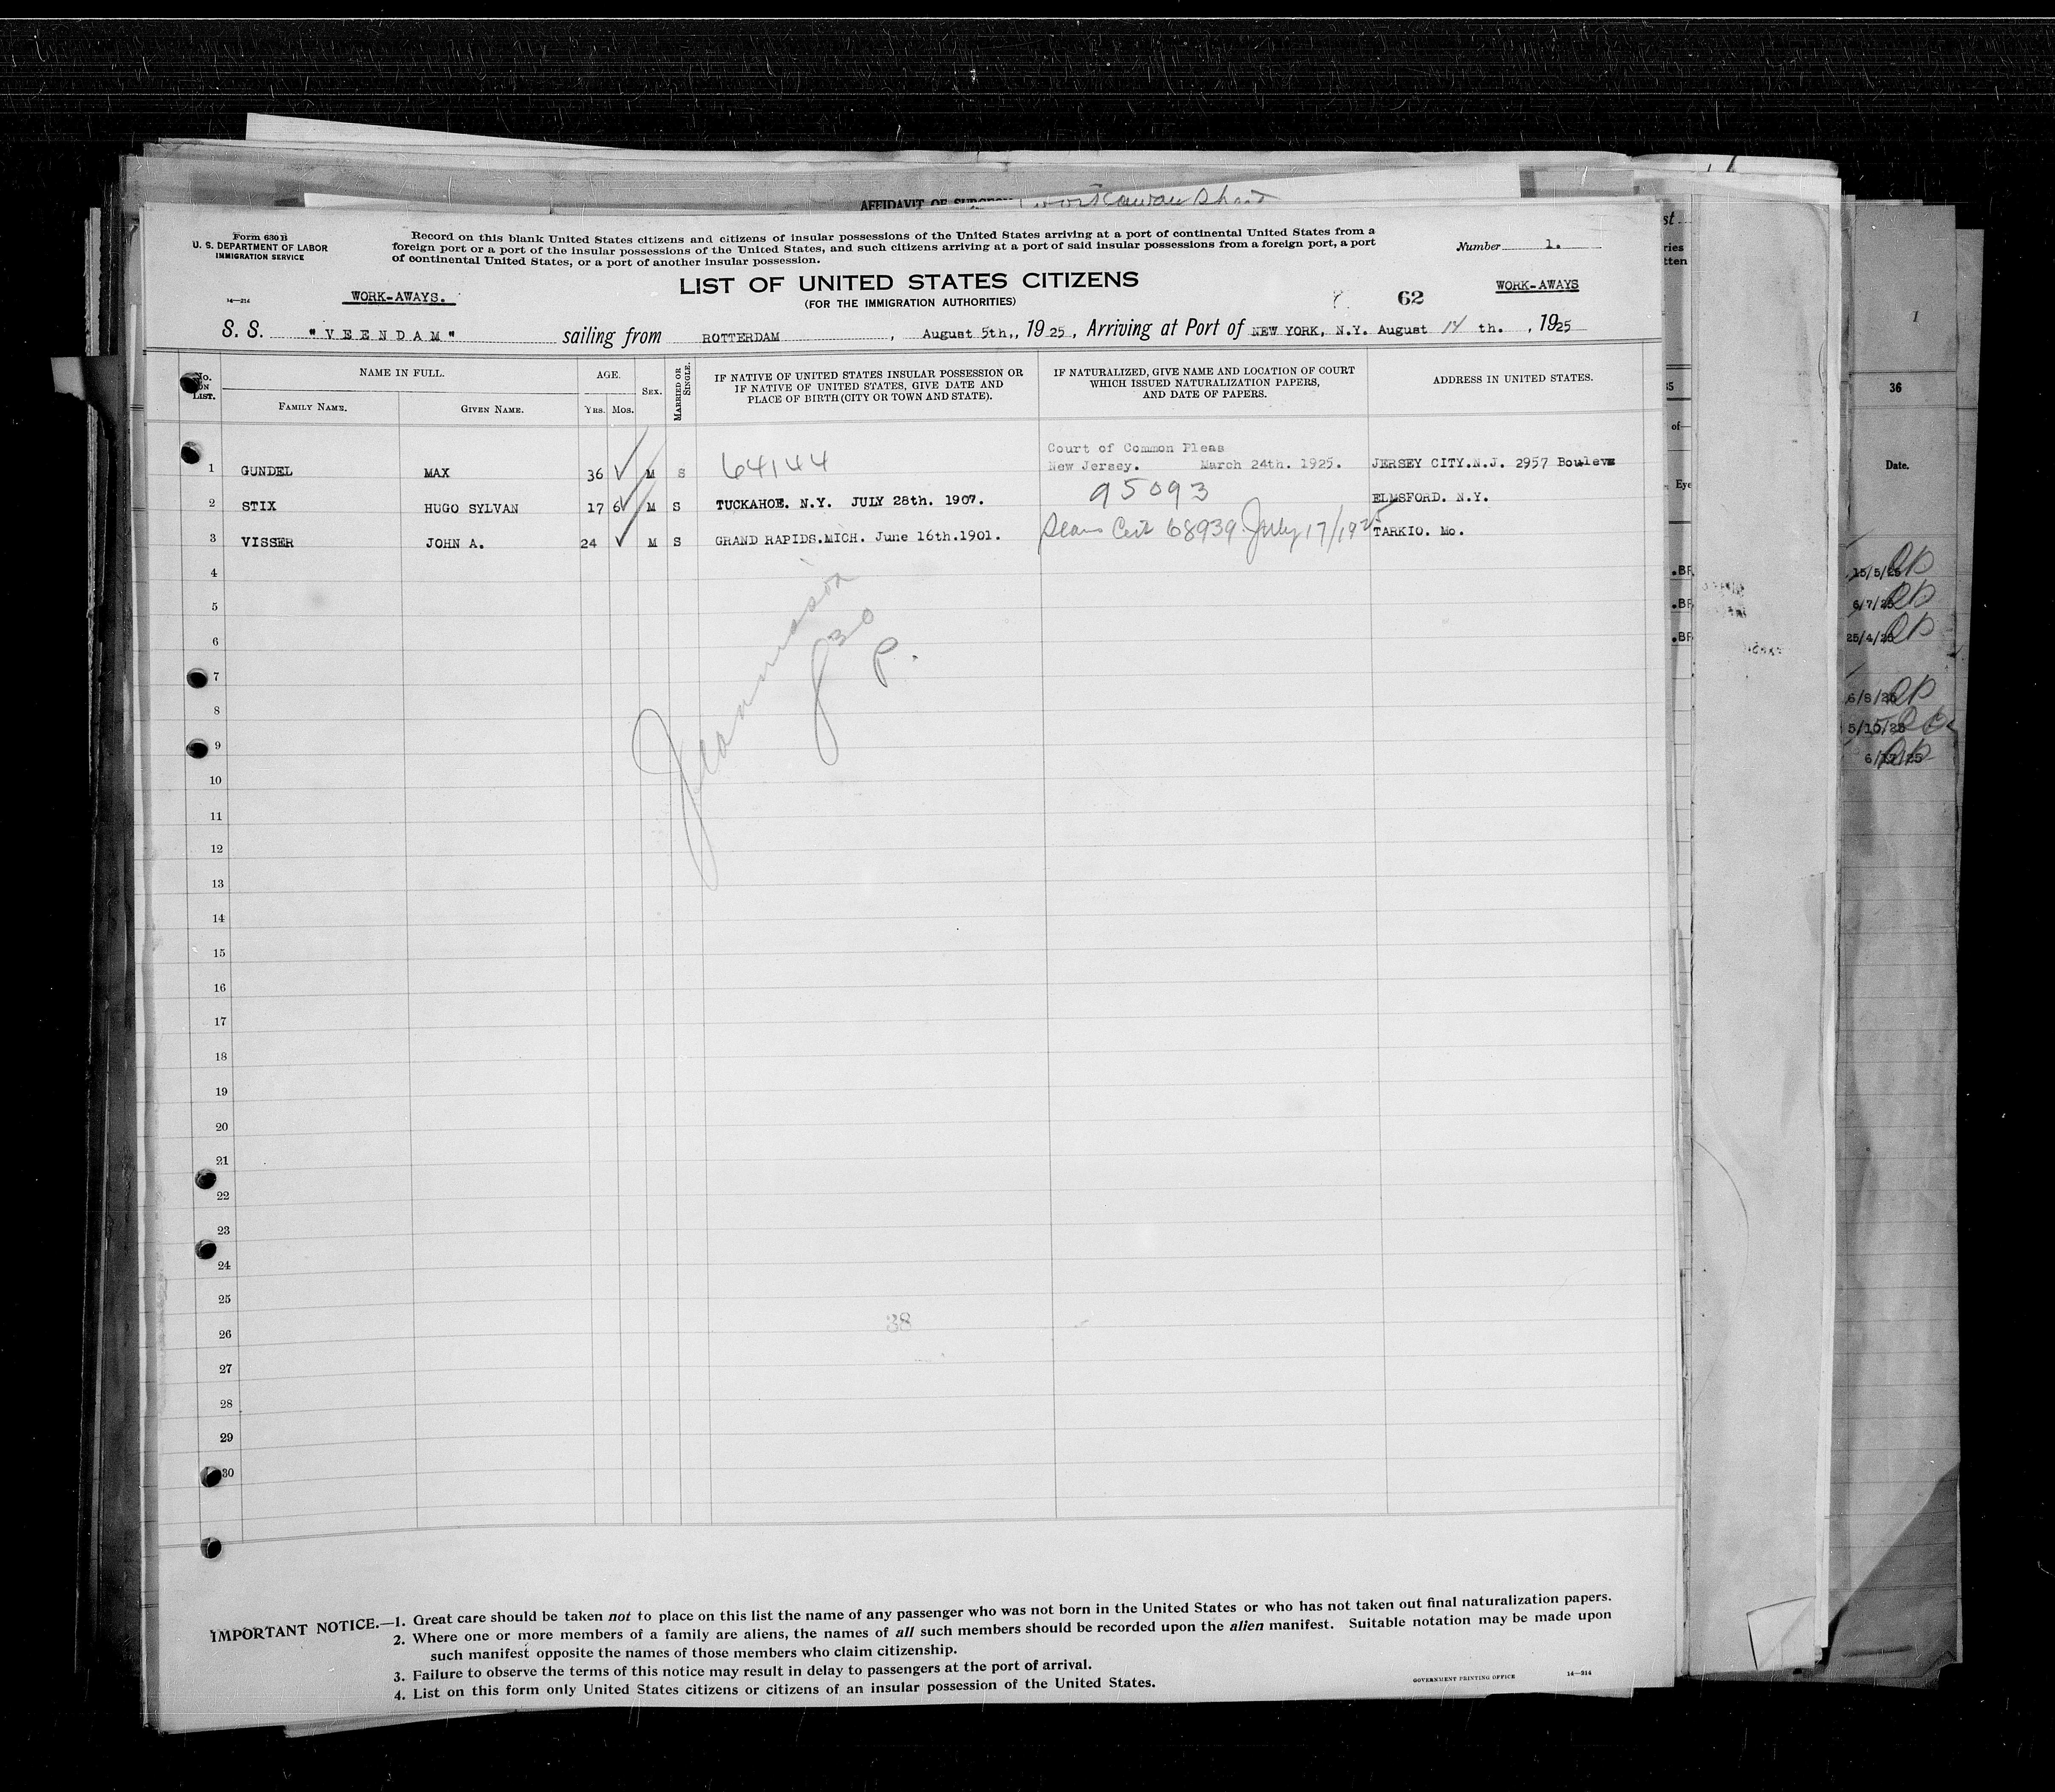 AFFIDAVIT OF SURGEON
Form 630 B
U. S. DEPARTMENT OF LABOR
IMMIGRATION SERVICE
Record on this blank United States citizens and citizens of insular possessions of the United States arriving at a port of continental United States from a
foreign port or a port of the insular possessions of the United States, and such citizens arriving at a port of said insular possessions from a foreign port, a port
of continental United States, or a port of another insular possession.
Number 1.
LIST OF UNITED STATES CITIZENS
(FOR THE IMMIGRATION AUTHORITIES)
14—214
WORK-AWAYS.
62
WORK-AWAYS
S. S. "VEENDAM" sailing from ROTTERDAM, August 5th,, 1925, Arriving at Port of NEW YORK, N.Y. August 14 th. , 1925
No. ON LIST.
NAME IN FULL.
FAMILY NAME.
GIVEN NAME.
AGE.
YRS. MOS.
SEX.
MARRIED OR SINGLE.
IF NATIVE OF UNITED STATES INSULAR POSSESSION OR
IF NATIVE OF UNITED STATES, GIVE DATE AND
PLACE OF BIRTH (CITY OR TOWN AND STATE).
IF NATURALIZED, GIVE NAME AND LOCATION OF COURT
WHICH ISSUED NATURALIZATION PAPERS,
AND DATE OF PAPERS.
ADDRESS IN UNITED STATES.
Court of Common Pleas
1 GUNDEL MAX 36 M S 64144 New Jersey. March 24th. 1925. JERSEY CITY.N.J. 2957 Bouleva
95093
2 STIX HUGO SYLVAN 17 6 M S TUCKAHOE. N.Y. JULY 28th. 1907. ELMSFORD. N.Y.
3 VISSER JOHN A. 24 M S GRAND RAPIDS.MICH. June 16th.1901. Seans Cert 68939 July 17/1925 TARKIO. Mo.
4
5
6
7
8
9
10
11
12
13
14
15
16
17
18
19
20
21
22
23
24
25
26
27
28
29
30
P.
38
IMPORTANT NOTICE.—1. Great care should be taken not to place on this list the name of any passenger who was not born in the United States or who has not taken out final naturalization papers.
2. Where one or more members of a family are aliens, the names of all such members should be recorded upon the alien manifest. Suitable notation may be made upon
such manifest opposite the names of those members who claim citizenship.
3. Failure to observe the terms of this notice may result in delay to passengers at the port of arrival.
4. List on this form only United States citizens or citizens of an insular possession of the United States.
GOVERNMENT PRINTING OFFICE 14—314
1
36
Date.
15/5/25
6/7/25
25/4/25
6/8/25
5/10/25